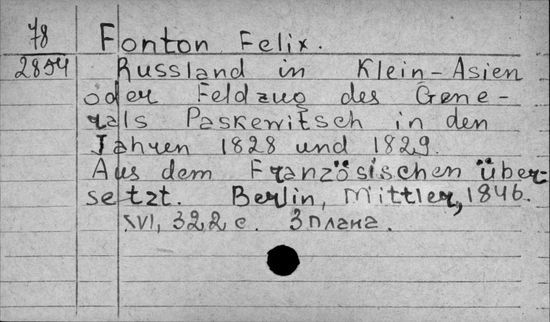 78 Fonton Felix.
2894 Russland in Klein-Asien
oder Feldzug des Gene-
rals Paskewitsch in den
Jahren 1828 und 1829.
Aus dem Französischen über-
setzt. Berlin, Mittler, 1846.
XVI, 322 с. 3 плана.